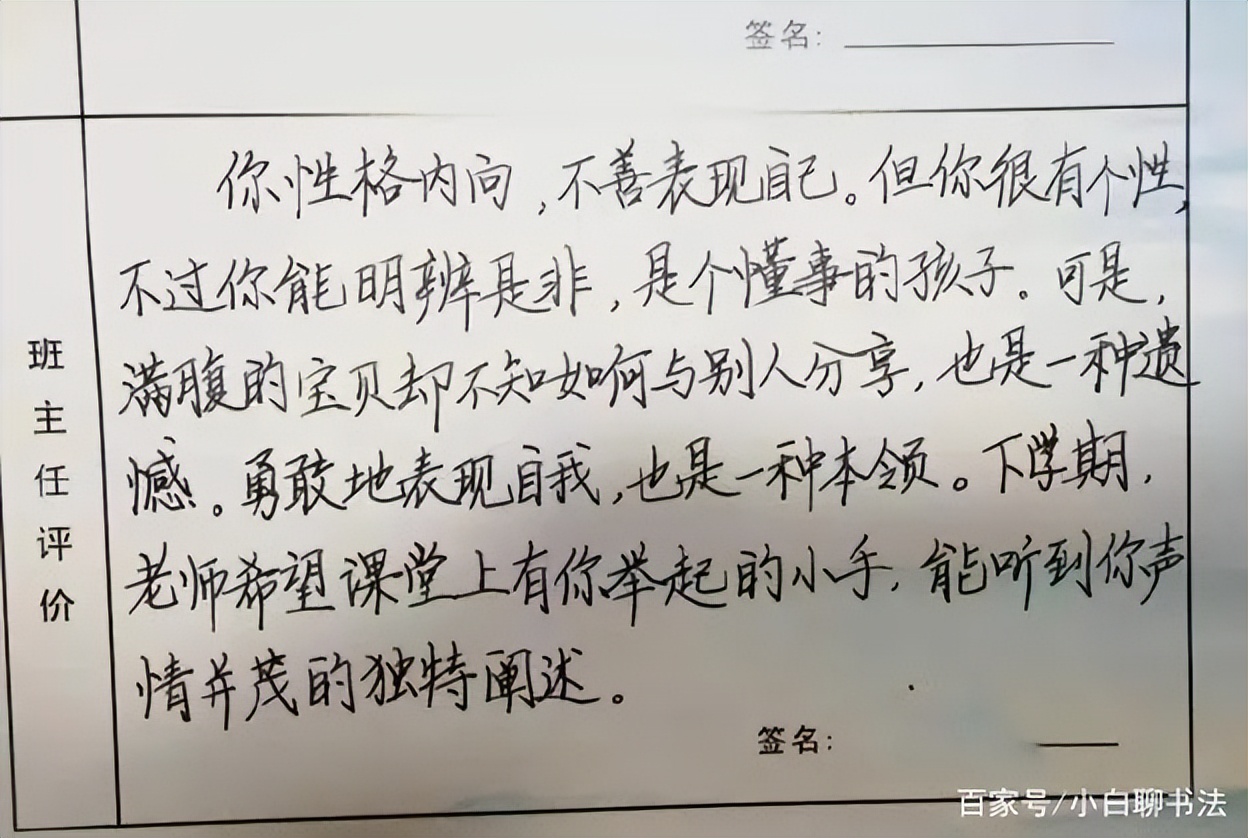 签名：
班主任评价
你性格内向，不善表现自己。但你很有个性，
不过你能明辨是非，是个懂事的孩子。可是，
满腹的宝贝却不知如何与别人分享，也是一种遗
憾。勇敢地表现自我，也是一种本领。下学期，
老师希望课堂上有你举起的小手，能听到你声
情并茂的独特阐述。
签名：
百家号/小白聊书法